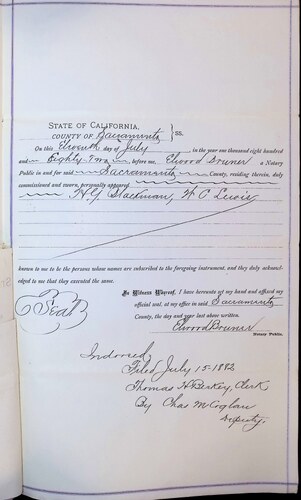 STATE OF CALIFORNIA,
COUNTY OF Sacramento } ss.
On this Eleventh day of July in the year one thousand eight hundred
and Eighty Two before me, Elwood Bruner a Notary
Public in and for said Sacramento County, residing therein, duly
commissioned and sworn, personally appeared
H. G. Blackman, W C Lewis
known to me to be the persons whose names are subscribed to the foregoing instrument, and they duly acknowl-
edged to me that they executed the same.
In Witness Whereof, I have hereunto set my hand and affixed my
(Seal)
official seal, at my office in said Sacramento
County, the day and year last above written.
Elwood Bruner
Notary Public.
Indorsed,
Filed July 15-1882
Thomas H. Berkey, Clerk
By Chas M Coglan
Deputy.